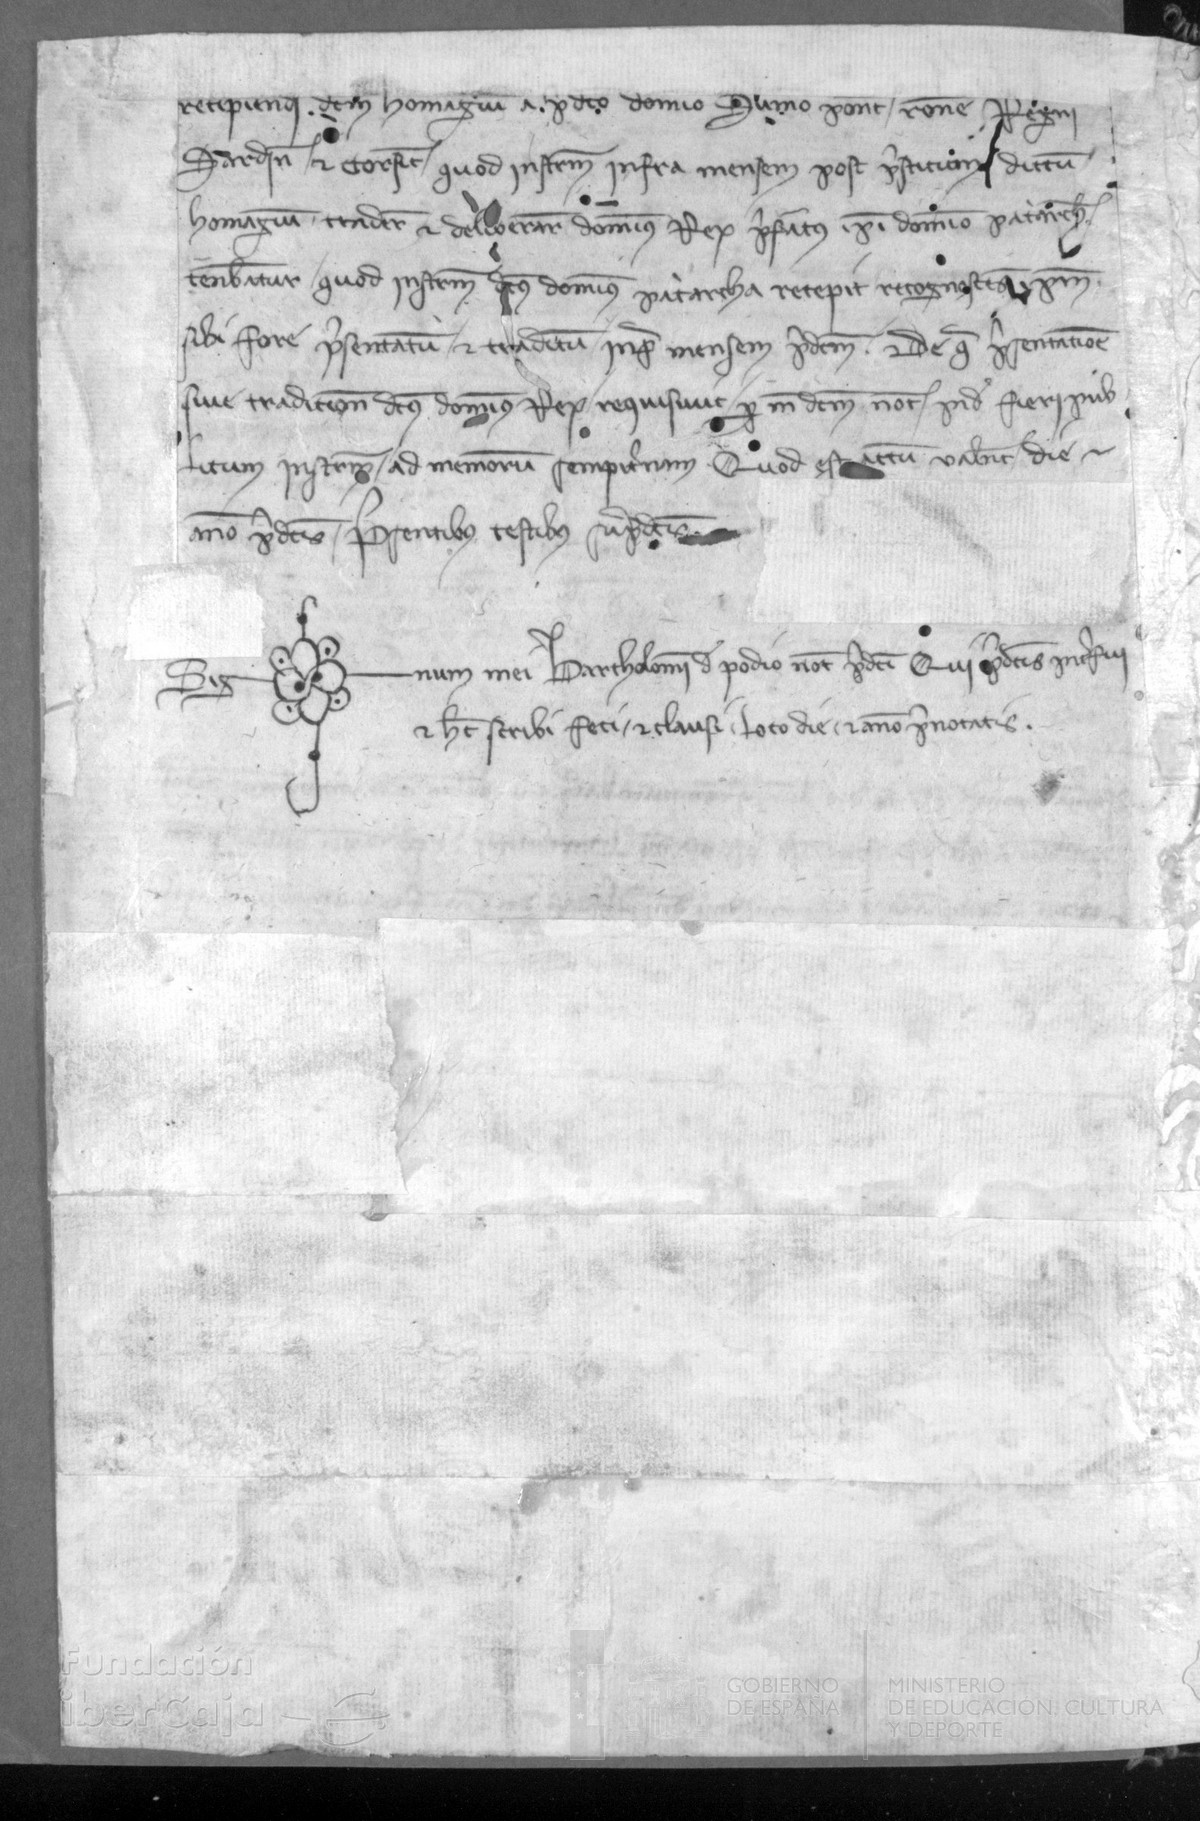 recepienq. dcm homagiu a. pdco domino Sumo pont rone Regni
Sardin et Corsic quod instrm infra mensem post prestitum dictu
homagiu tradere et deliberare dominus Rex prefatus ipi domino patarch
tenebatur quod instrm dcus dominus patarcha recepit recognoscens ipm
sibi fore presentatu et traditu infra mensem predcm. et de qua presentatione
sive tradicion dcus dominus Rex requisivit per me dcm not inde fieri pub
licum instrm ad memoriu sempiternam Quod est actu Valenc die et
ano predcis Presentibus testibus supradcis.
Sig num mei Bartholomi de podio not predci Qui predcis interfui
et hec scribi feci et clausi loco die et ano prenotatis.
Fundación
iberCaja
GOBIERNO
DE ESPAÑA
MINISTERIO
DE EDUCACIÓN, CULTURA
Y DEPORTE